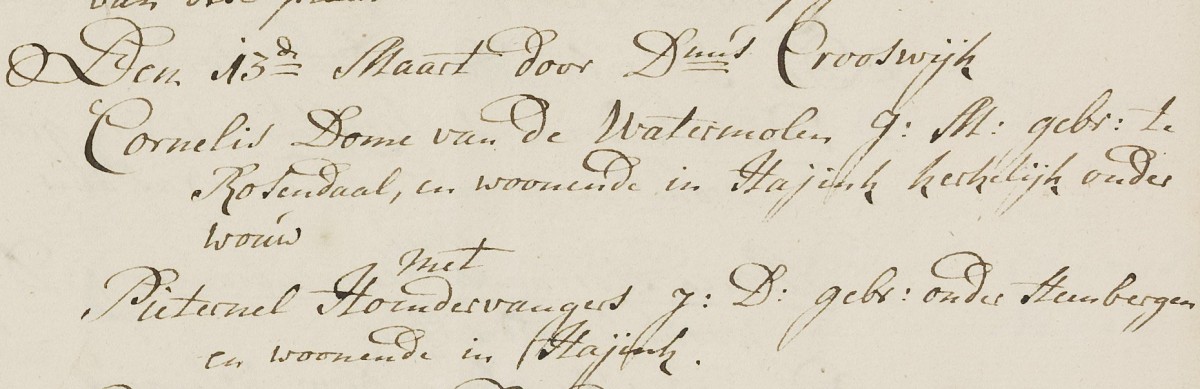 van
Den 13de Maart door Dmus Crooswijk
Cornelis Dome van de Watermolen J: M: gebr: te
Rosendaal, en woonende in Hajink kerkelijk onder
wouw
met
Pieternel Hoendervangers J: D: gebr: onder Steenbergen
en woonende in Hajink.